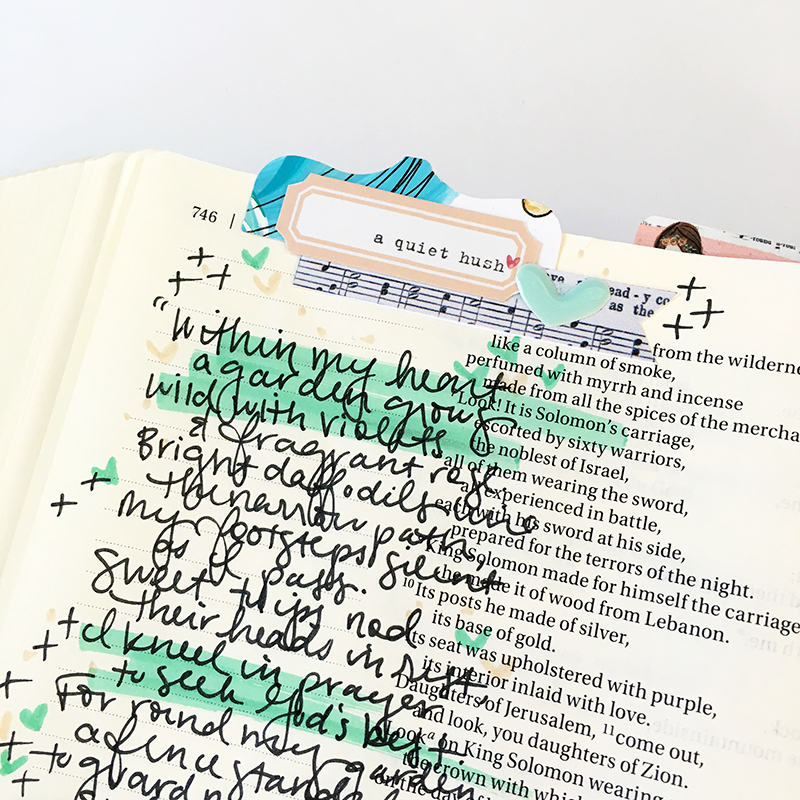 746 |
a quiet hush
ead - y co
as the
"Within my heart
a garden grows
wild with violets
& fragrant rose.
Bright daffodils line
the narrow path,
my footsteps silent
as I pass.
Sweet tulips nod
their heads in rest
I kneel in prayer
to seek God's best.
For round my garden
a fence stands
to guard
from the wilderne
like a column of smoke,
perfumed with myrrh and incense
made from all the spices of the mercha
Look! It is Solomon's carriage,
escorted by sixty warriors,
the noblest of Israel,
all of them wearing the sword,
all experienced in battle,
each with his sword at his side,
prepared for the terrors of the night.
King Solomon made for himself the carriage
he made it of wood from Lebanon.
10 Its posts he made of silver,
its base of gold.
Its seat was upholstered with purple,
its interior inlaid with love.
Daughters of Jerusalem, 11 come out,
and look, you daughters of Zion.
Look a on King Solomon wearing
the crown with which
on the day of